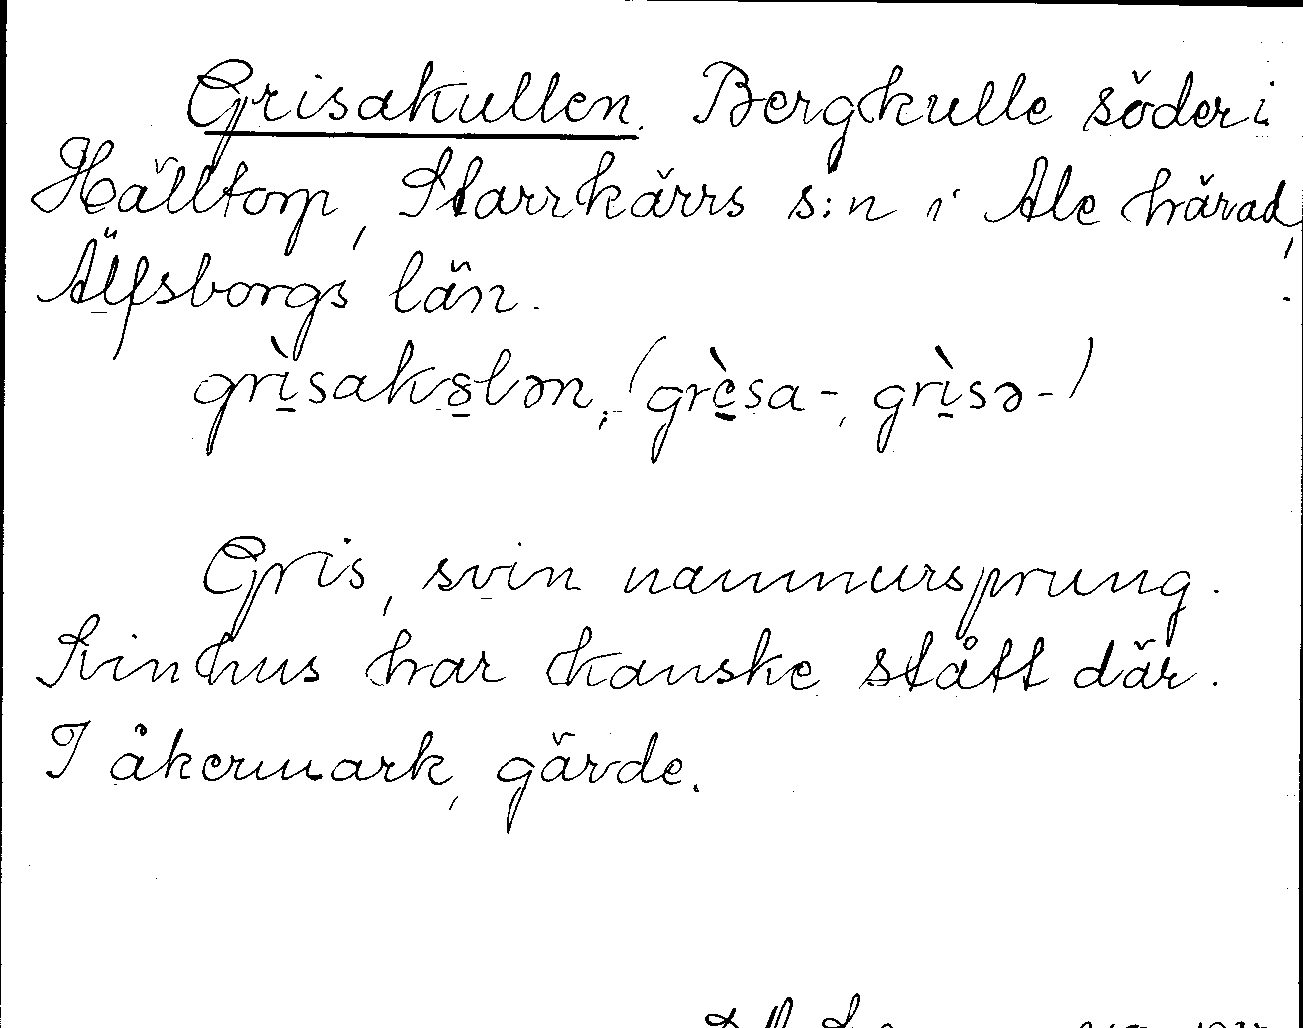 Grisakullen. Bergkulle söder i
Hälltorp, Starrkärrs s:n i Ale härad,
Älfsborgs län.
grìsakȣlən, (grèsa-, grìsə-)
Gris, svin namnursprung.
Svinhus har kanske stått där.
I åkermark, gärde.